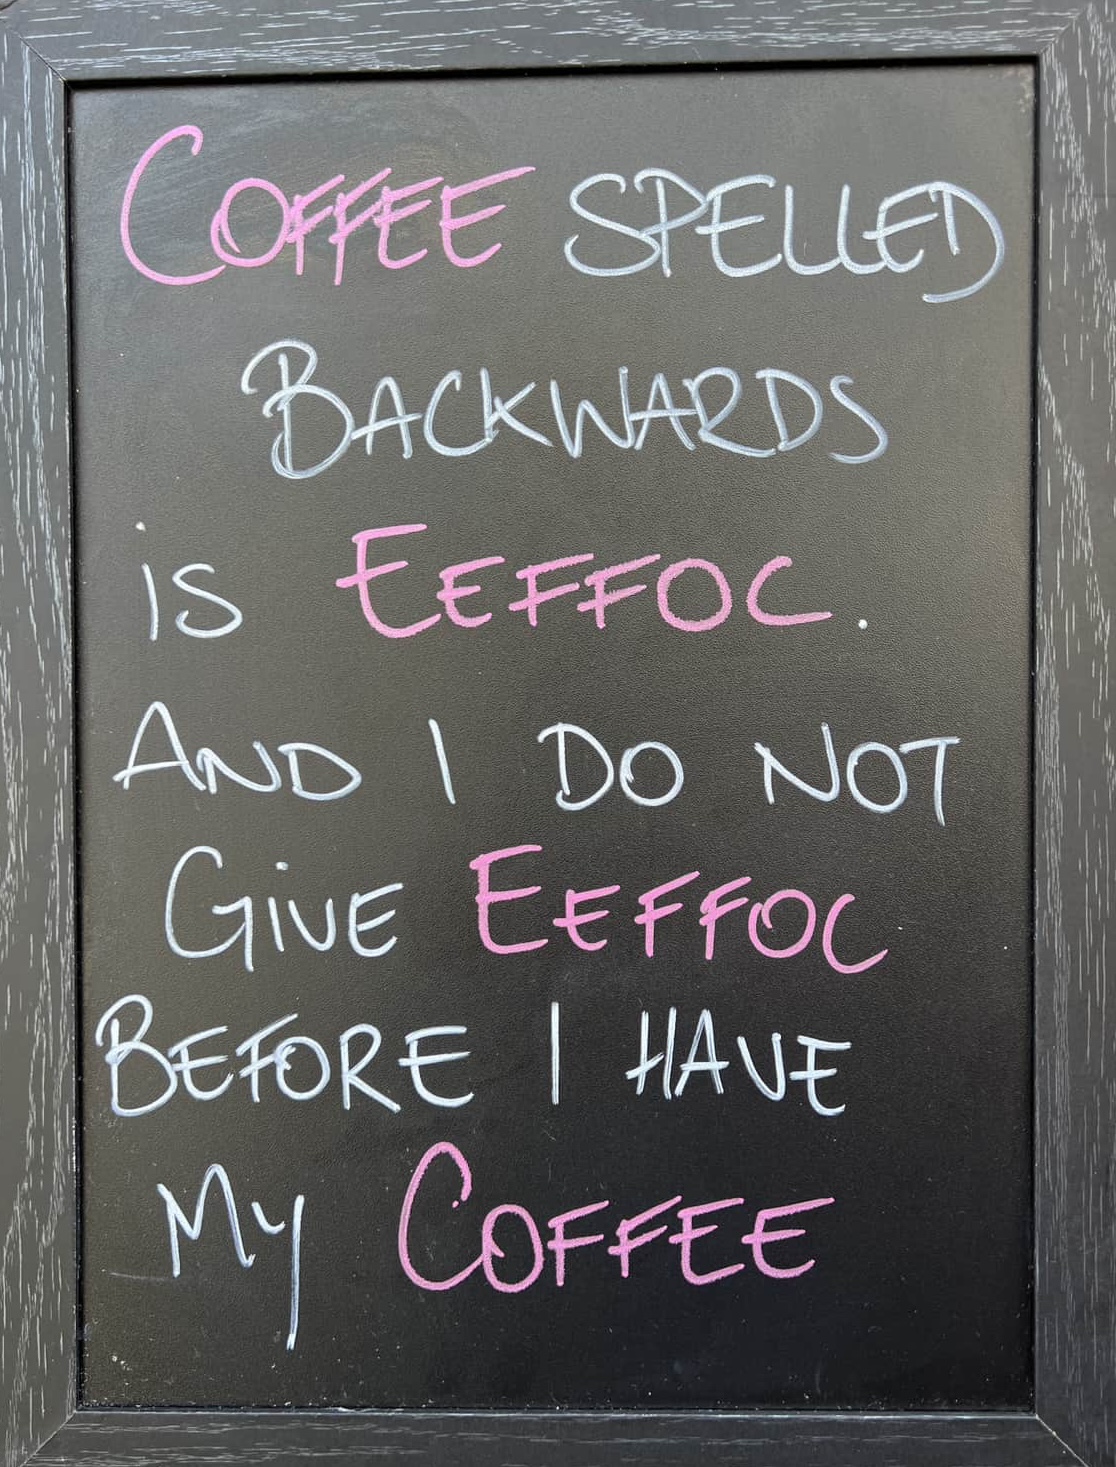 COFFEE SPELLED
BACKWARDS
iS EEFFOC.
AND I DO NOT
GiVE EEFFOC
BEFORE I HAVE
My COFFEE